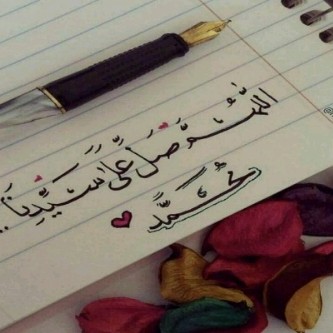 اللَّهُمَّ صَلِّ عَلَى سَيِّدِنَا..
مُحَمَّدٍ